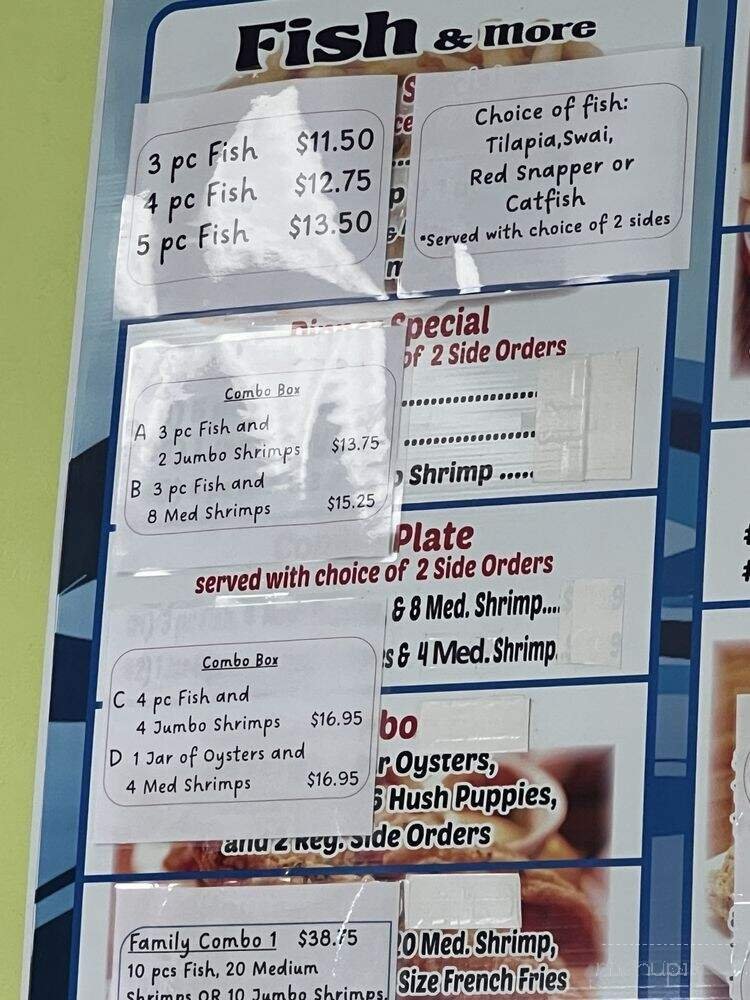 Fish & more
3 pc Fish $11.50
4 pc Fish $12.75
5 pc Fish $13.50
Choice of fish:
Tilapia,Swai,
Red Snapper or
Catfish
*Served with choice of 2 sides
Special
of 2 Side Orders
Shrimp .....
Combo Box
A 3 pc Fish and
2 Jumbo Shrimps $13.75
B 3 pc Fish and
8 Med Shrimps $15.25
Plate
served with choice of 2 Side Orders
& 8 Med. Shrimp....
& 4 Med. Shrimp
Combo Box
C 4 pc Fish and
4 Jumbo Shrimps $16.95
D 1 Jar of Oysters and
4 Med Shrimps $16.95
bo
r Oysters,
6 Hush Puppies,
and 2 Reg. Side Orders
Family Combo 1 $38.75
10 pcs Fish, 20 Medium
Shrimps OR 10 Jumbo Shrimps,
20 Med. Shrimp,
Size French Fries